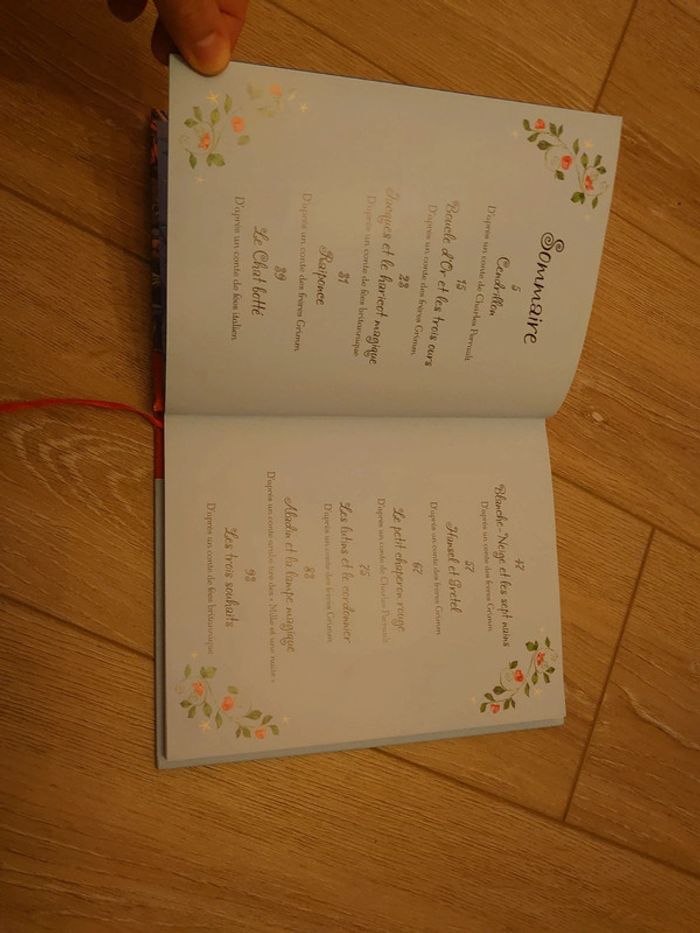 Sommaire
5
Cendrillon
D'après un conte de Charles Perrault
15
Boucle d'Or et les trois ours
D'après un conte des frères Grimm
23
Jacques et le haricot magique
D'après un conte de fées britannique
31
Raiponce
D'après un conte des frères Grimm
39
Le Chat botté
D'après un conte de fées italien
47
Blanche-Neige et les sept nains
D'après un conte des frères Grimm
57
Hansel et Gretel
D'après un conte des frères Grimm
67
Le petit chaperon rouge
D'après un conte de Charles Perrault
75
Les lutins et le cordonnier
D'après un conte des frères Grimm
83
Aladin et la lampe magique
D'après un conte arabe tiré des « Mille et une nuits »
93
Les trois souhaits
D'après un conte de fées britannique